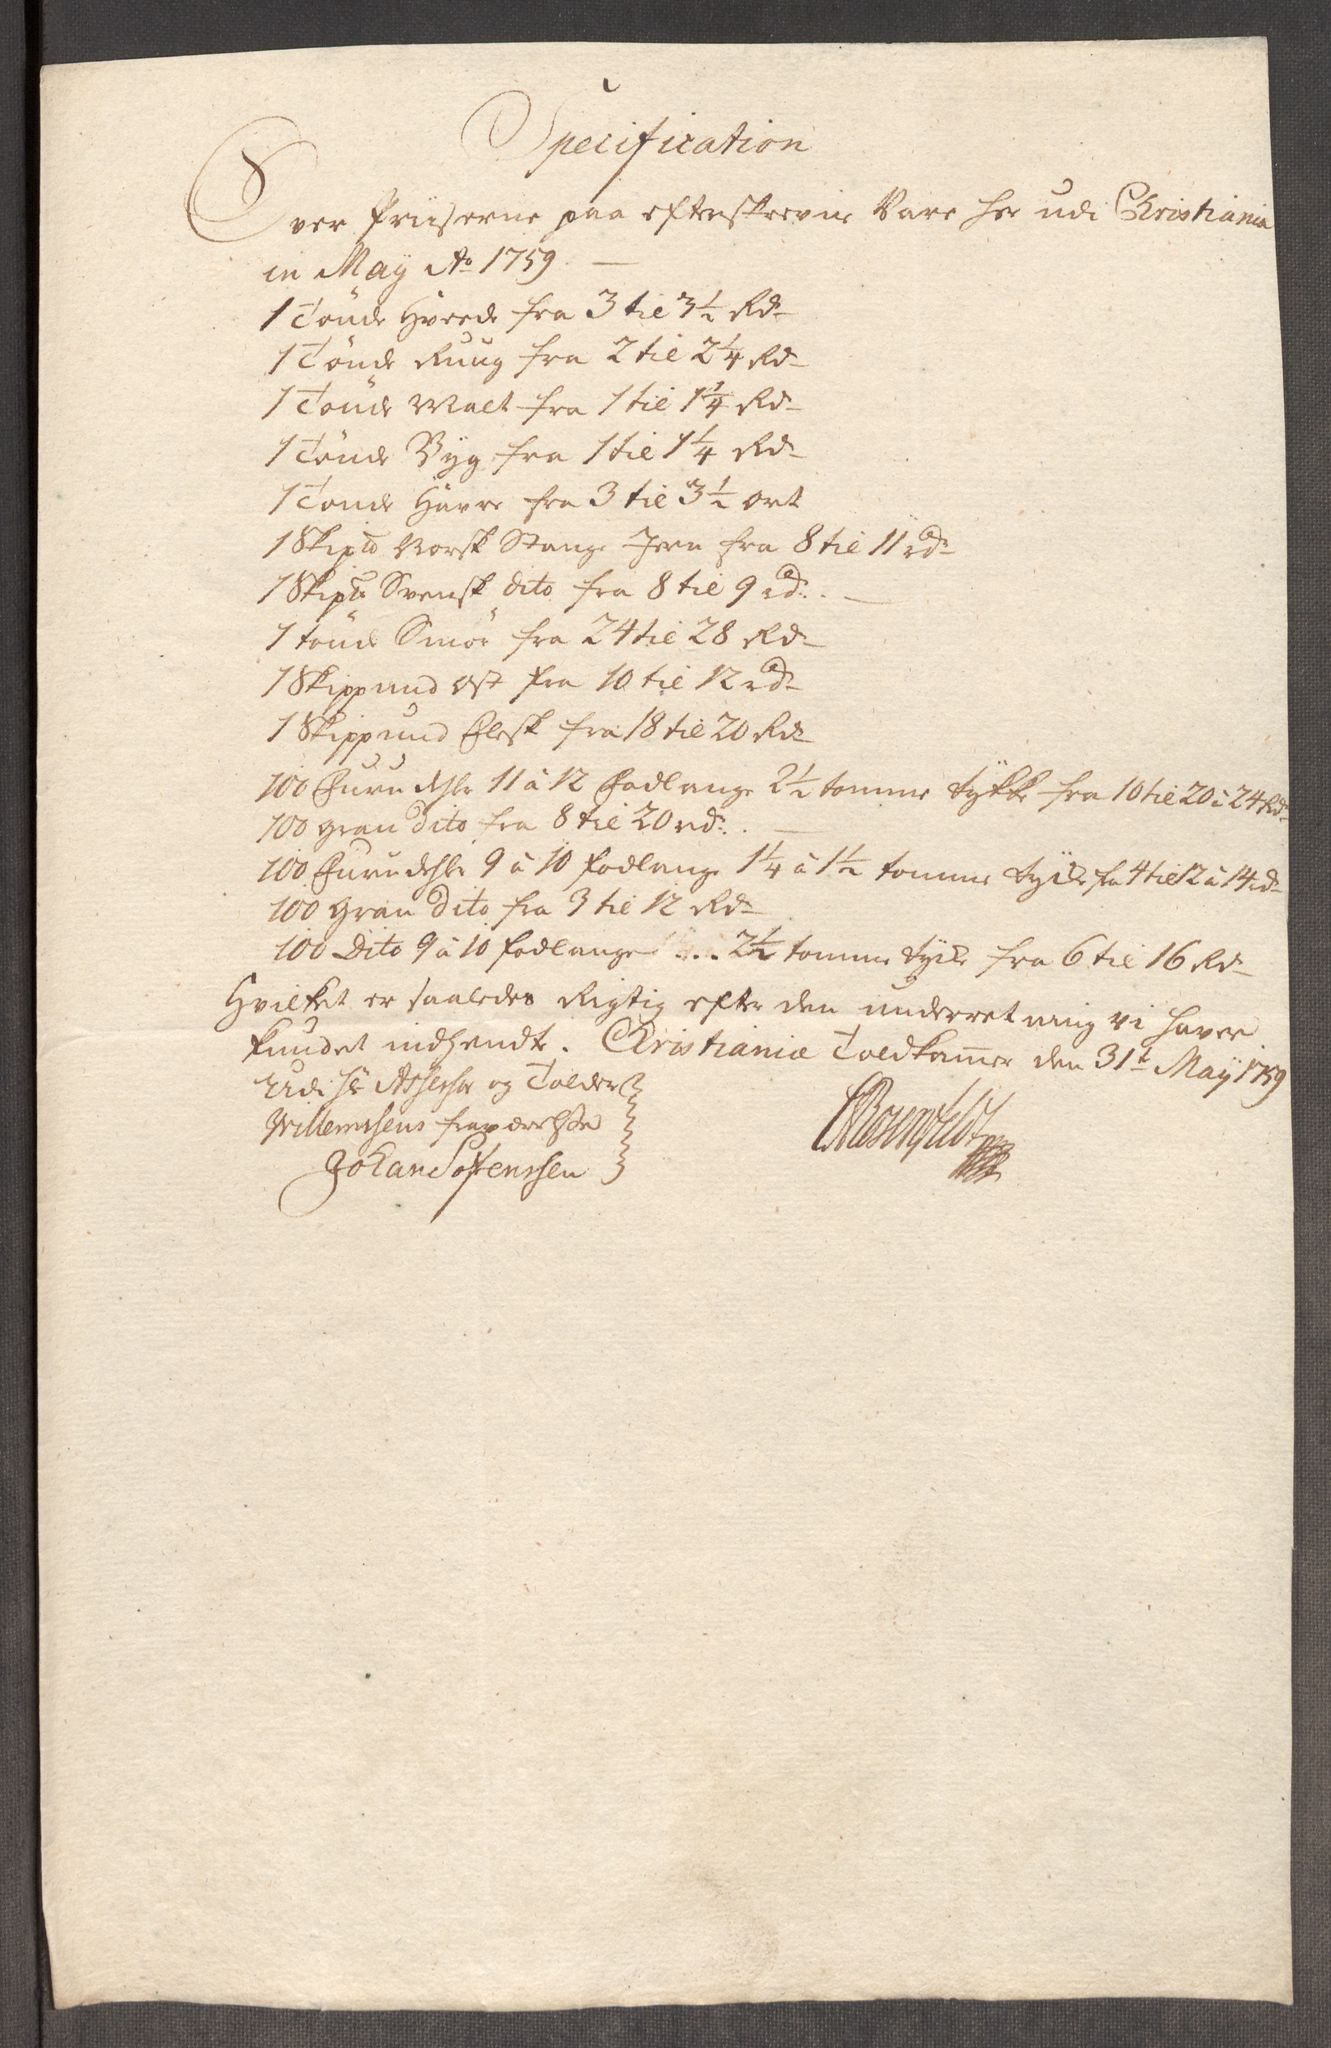 Specification
Over Priiserne paa efterskrevne Vare her udi Christiania
in May Ao 1759 —
1 Tönde Hvede fra 3 til 3½ Rd
1 Tönde Ruug fra 2 til 2¼ Rd
1 Tönde Malt fra 1 til 1¼ Rd
1 Tönde Byg fra 1 til 1¼ Rd
1 Tonde Havre fra 3 til 3½ ort
1 Skip℔ Norsk Stange Jern fra 8 til 11 rd
1 Skip℔ Svensk dito fra 8 til 9 rd. —
1 tönde Smör fra 24 til 28 Rd
1 Skippund Ost fra 10 til 12 rd
1 Skippund Flesk fra 18 til 20 Rd
100 Furu dehle 11 á 12 Fodlange 2½ tomme tykke fra 10 til 20 á 24 Rd
100 gran dito fra 8 til 20 rd. —
100 Furu dehle 9 á 10 fodlange 1¼ á 1½ tomme tyke fra 4 til 12 á 14 rd
100 Gran dito fra 3 til 12 Rd
100 Dito 9 á 10 fodlange 2½ tomme tyke fra 6 til 16 Rd
Hvilket er saaledes Rigtig efter den underretning vi haver
kundet indhendte. Christianiæ Toldkamer den 31t May 1759
Udi Hr Assessor og Tolder
Willemsens fraværelse
Johan Sörenssen
CRosenfeldt